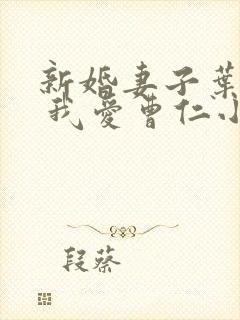 新婚妻子葉
我愛曹仁小
段蔡